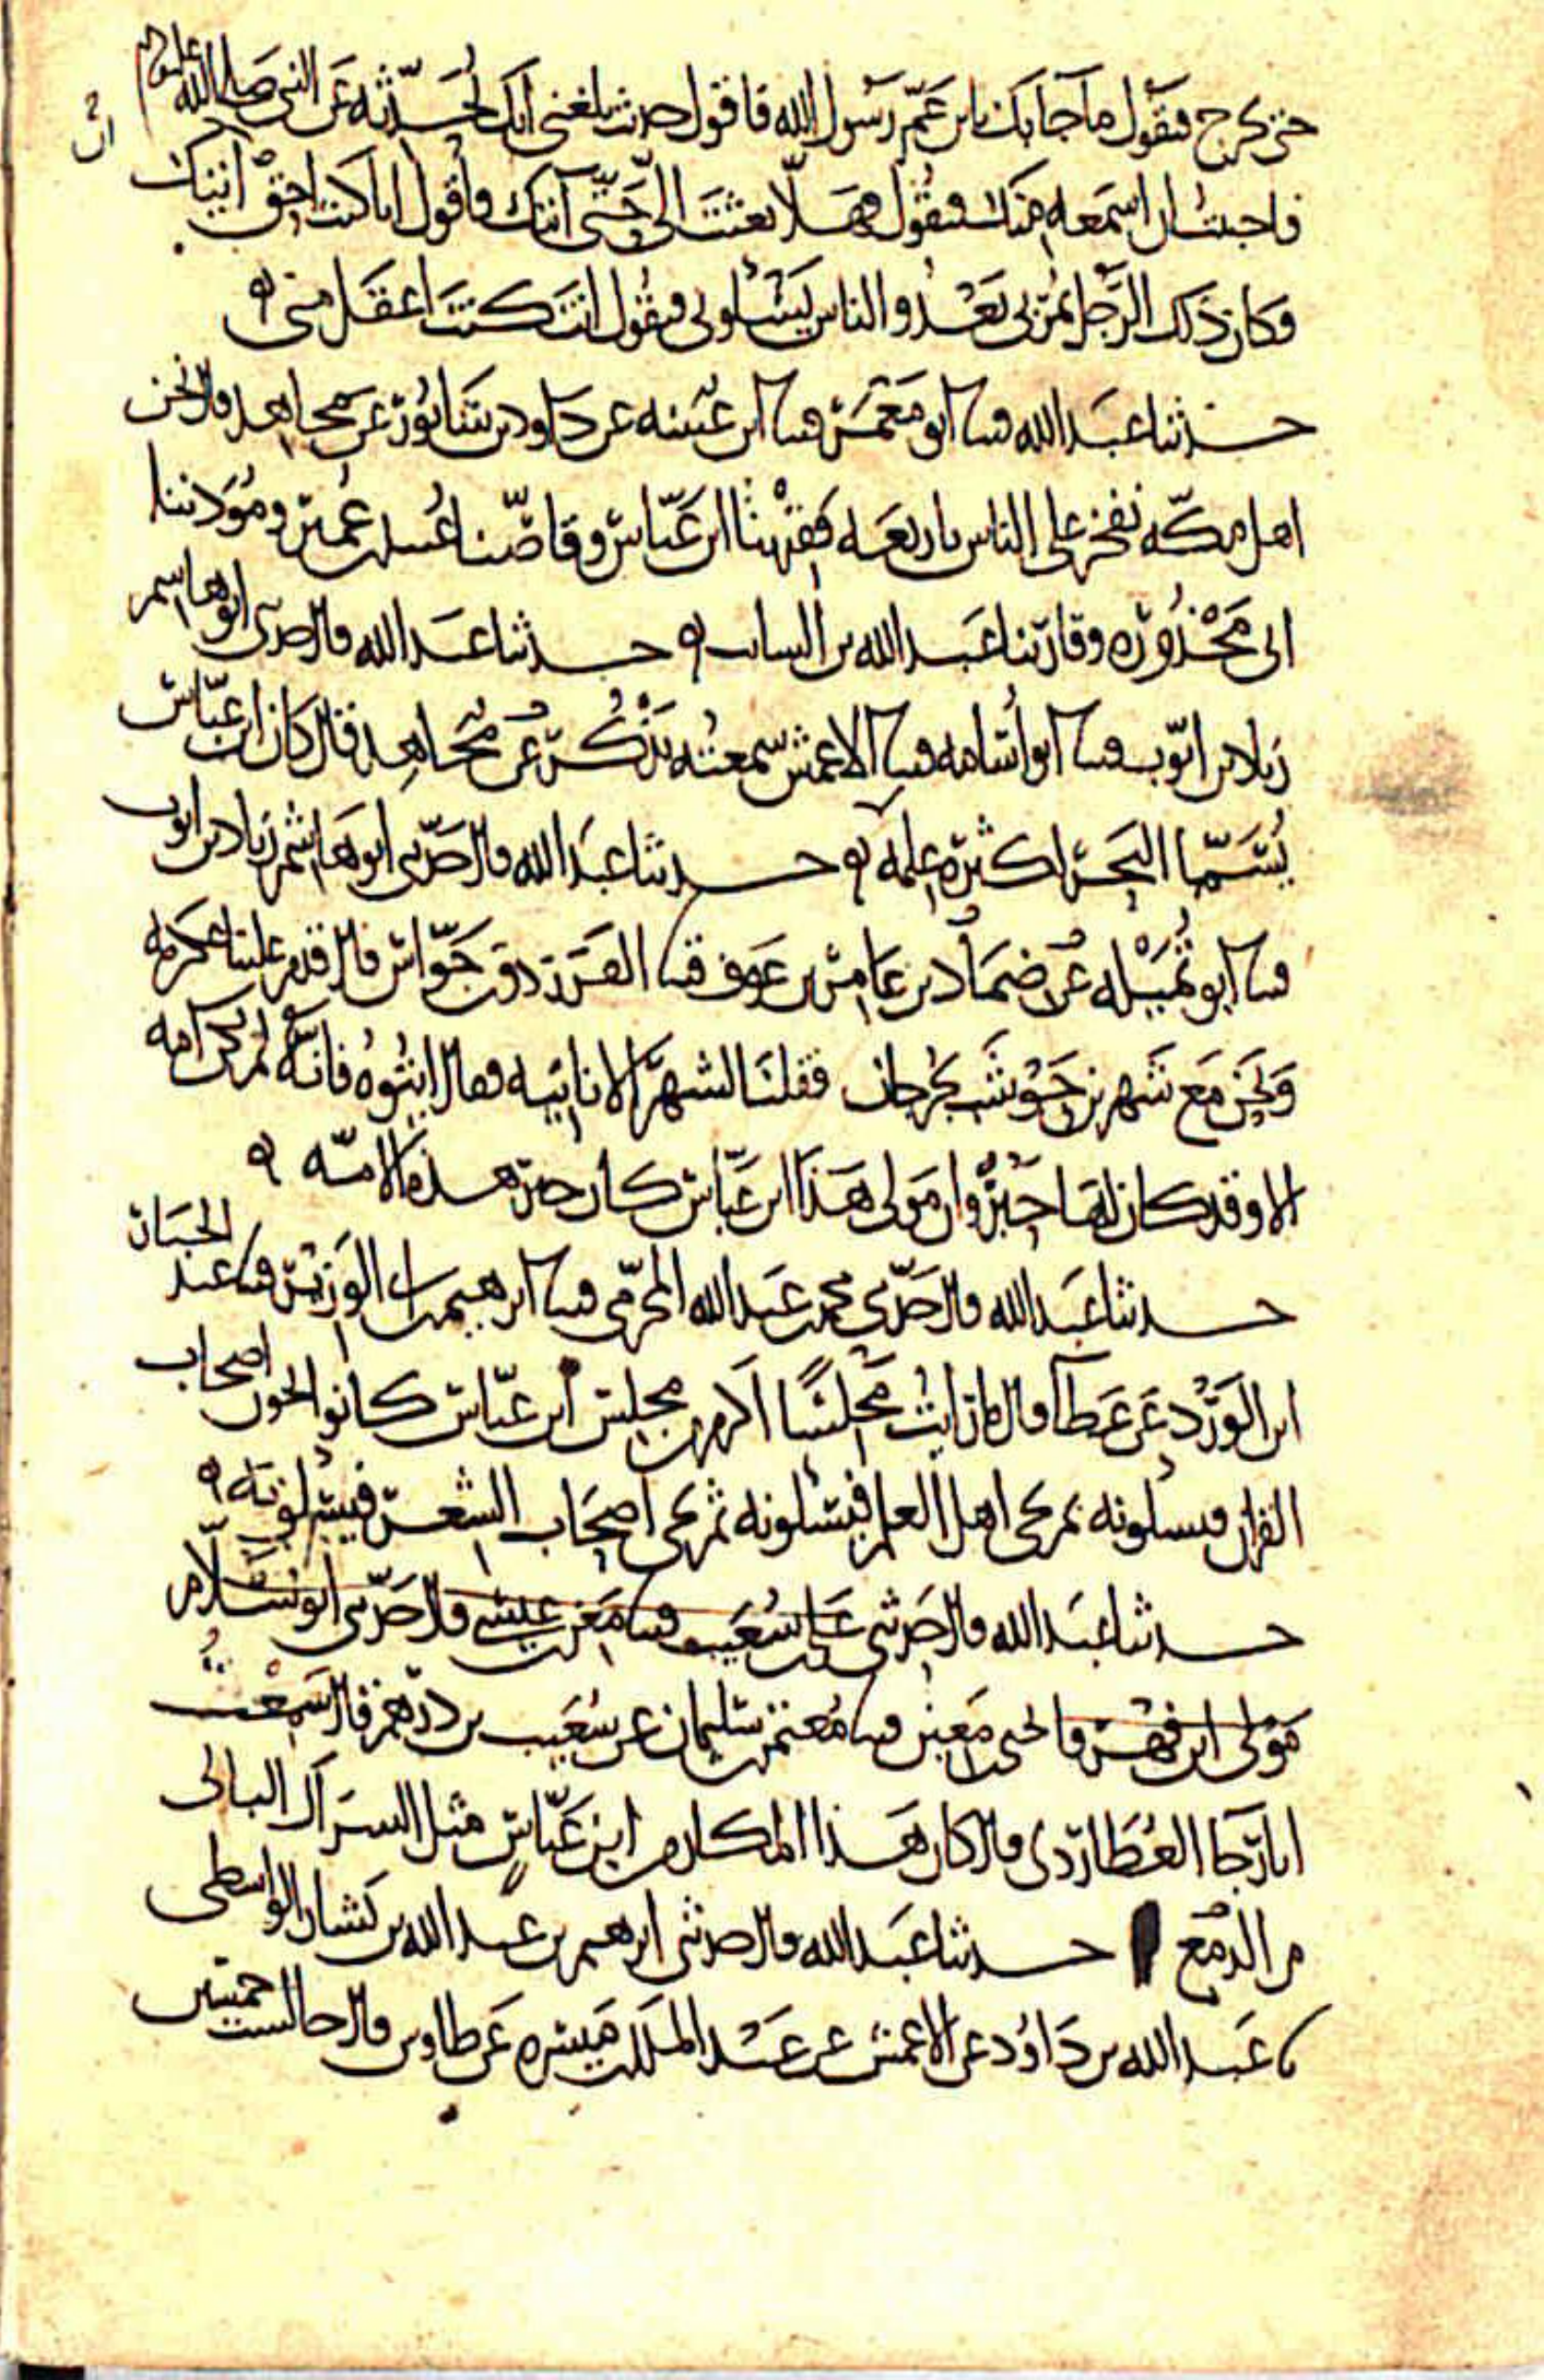 حتى يخرج فيقول ما جا بك يابن عم رسول الله فاقول حديث بلغني انك تحدثه عن النبي صلى الله عليه وسلم
فاحببت ان اسمعه منك فيقول فهلا بعثت الي حتى آتيك فاقول انا كنت احق ان اتيك
وكان ذلك الرجل يمر بي بعد والناس يسألوني فيقول انت كنت اعقل مني
حدثنا عبد الله قثنا ابو معمر قثنا ابن عيينه عن داود بن شابور عن مجاهد قال نحن
اهل مكة نفخر على الناس باربعه فقيهنا ابن عباس وقاصنا عبيد بن عمير ومؤذننا
ابي محذوره وقارئنا عبد الله بن السايب حدثنا عبد الله قال حدثني ابو هاشم
زياد بن ايوب قثنا ابو أسامه قثنا الاعمش سمعته يذكره عن مجاهد قال كان ابن عباس
يسما البحر لكثرة علمه حدثنا عبد الله قال حدثني ابو هاشم زياد بن ايوب
قثنا ابو تميله عن ضماد بن عامر بن عوف قثنا الفرزدق بن جواس قال قدم علينا عكرمه
ونحن مع شهر بن حوشب بجرجان فقلنا لشهر الا نا تيه فقال ايتوه فانه لم تكن امه
الا وقد كان لها حبر وان مولى هذا ابن عباس كان حبر هذه الامه
حدثنا عبد الله قال حدثني محمد بن عبد الله المخرمي قثنا ابرهيم بن ابي الوزير قثنا عبد الجبار
ابن الورد عن عطا قال ما رايت مجلسا اكرم من مجلس ابن عباس كانوا يجون اصحاب
القران فيسلونه ثم يجي اهل العلم فيسئلونه ثم يجي اصحاب الشعر فيسئلونه
حدثنا عبد الله قال حدثني علي بن شعيب قثنا معن بن عيسى قال حدثني ابو سلام
مولى ابن فهر ويحيى بن معين قثنا معتمر بن سليمان عن شعيب بن درهم قال سمعت
ابا رجا العطاردي قال كان هذا المكان من ابن عباس مثل الشراك البالى
من الدمع حدثنا عبد الله قال حدثني ابرهيم بن عبد الله بن بشار الواسطي
ثنا عبد الله بن داود عن الاعمش عن عبد الملك بن ميسره عن طاوس قال جالست خمسين